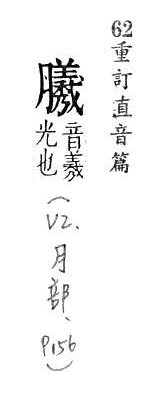 62重訂直音篇
音羲
光也
(V2、月部、P156)